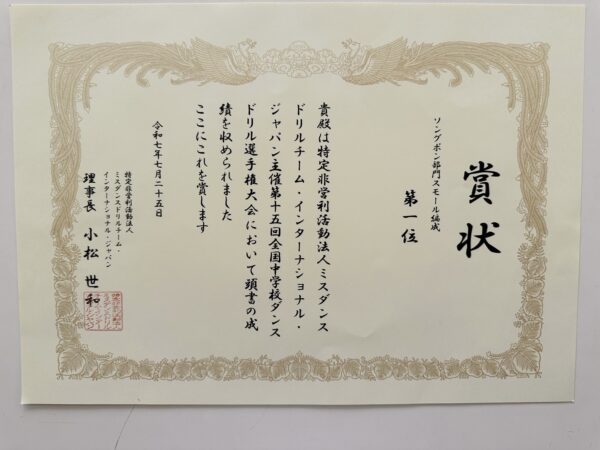 賞状
ソングポン部門スモール編成
第一位
貴殿は特定非営利活動法人ミスダンス
ドリルチーム・インターナショナル・
ジャパン主催第十五回全国中学校ダンス
ドリル選手権大会において頭書の成
績を収められました
ここにこれを賞します
令和七年七月二十五日
特定非営利活動法人
ミスダンスドリルチーム・
インターナショナル・ジャパン
理事長 小松世和